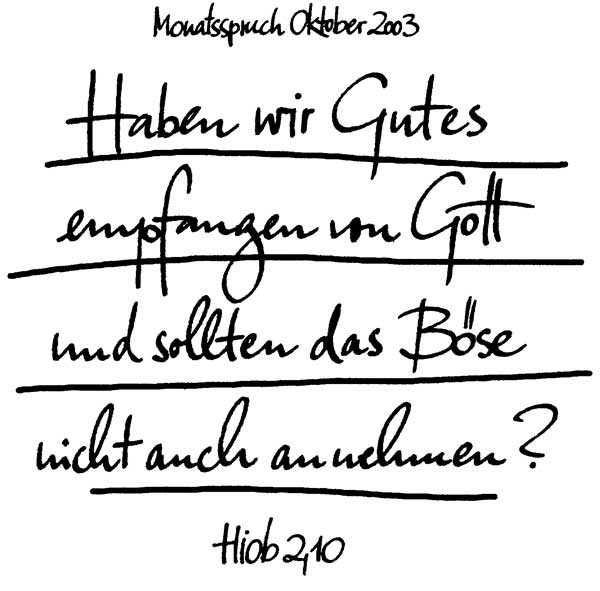 Monatsspruch Oktober 2003
Haben wir Gutes
empfangen von Gott
und sollten das Böse
nicht auch annehmen?
Hiob 2,10